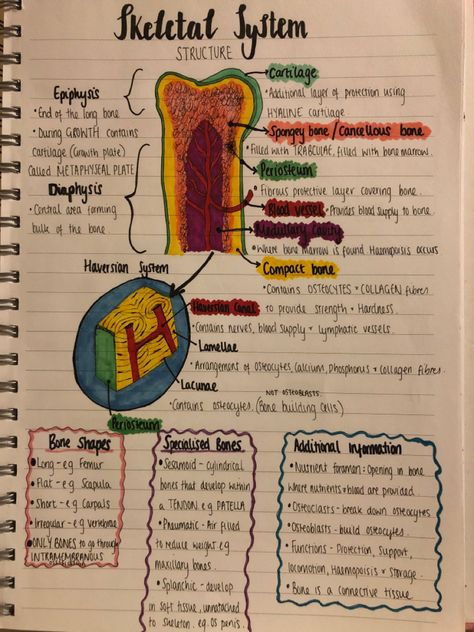 Skeletal System
STRUCTURE
Epiphysis
• End of the long bone
• During GROWTH contains
Cartilage (Growth plate)
Called METAPHYSEAL PLATE
Diaphysis
• Central area forming
bulk of the bone
Cartilage
• Additional layer of protection using
HYALINE cartilage
Spongey bone / Cancellous bone
• Filled with TRABCULAE, filled with bone marrow.
Periosteum
• Fibrous protective layer covering bone.
Blood vessel • Provides blood supply to bone.
Medullary Cavity
• Where bone marrow is found. Haemopoisis occurs
Compact bone
• Contains OSTEOCYTES + COLLAGEN fibres
to provide strength + Hardness.
Haversian System
H
Haversian Canal
• Contains nerves, blood supply + lymphatic vessels.
Lamellae
• Arrangement of osteocytes, Calcium, Phosphorus + Collagen Fibres.
Lacunae
NOT OSTEOBLASTS
• Contains osteocytes (Bone building cells)
Periosteum
Bone Shapes
• Long - eg Femur
• Flat - eg Scapula
• Short - eg Carpals
• Irregular - eg Vertebrae
• ONLY BONES to go through
INTRAMEMBRANOUS
Specialised Bones
• Sesamoid - cylindrical
bones that develop within
a TENDON eg PATELLA
• Pneumatic - Air filled
to reduce weight eg
maxillary bones.
• Splanchic - develop
in soft tissue, unnatached
to skeleton. eg. Os penis.
Additional Information
• Nutrient foraman: Opening in bone
where nutrients + blood are provided
• Osteoclasts - break down osteocytes
• Osteoblasts - build osteocytes.
• Functions - Protection, Support,
locomotion, Haemopoisis + storage.
• Bone is a connective tissue